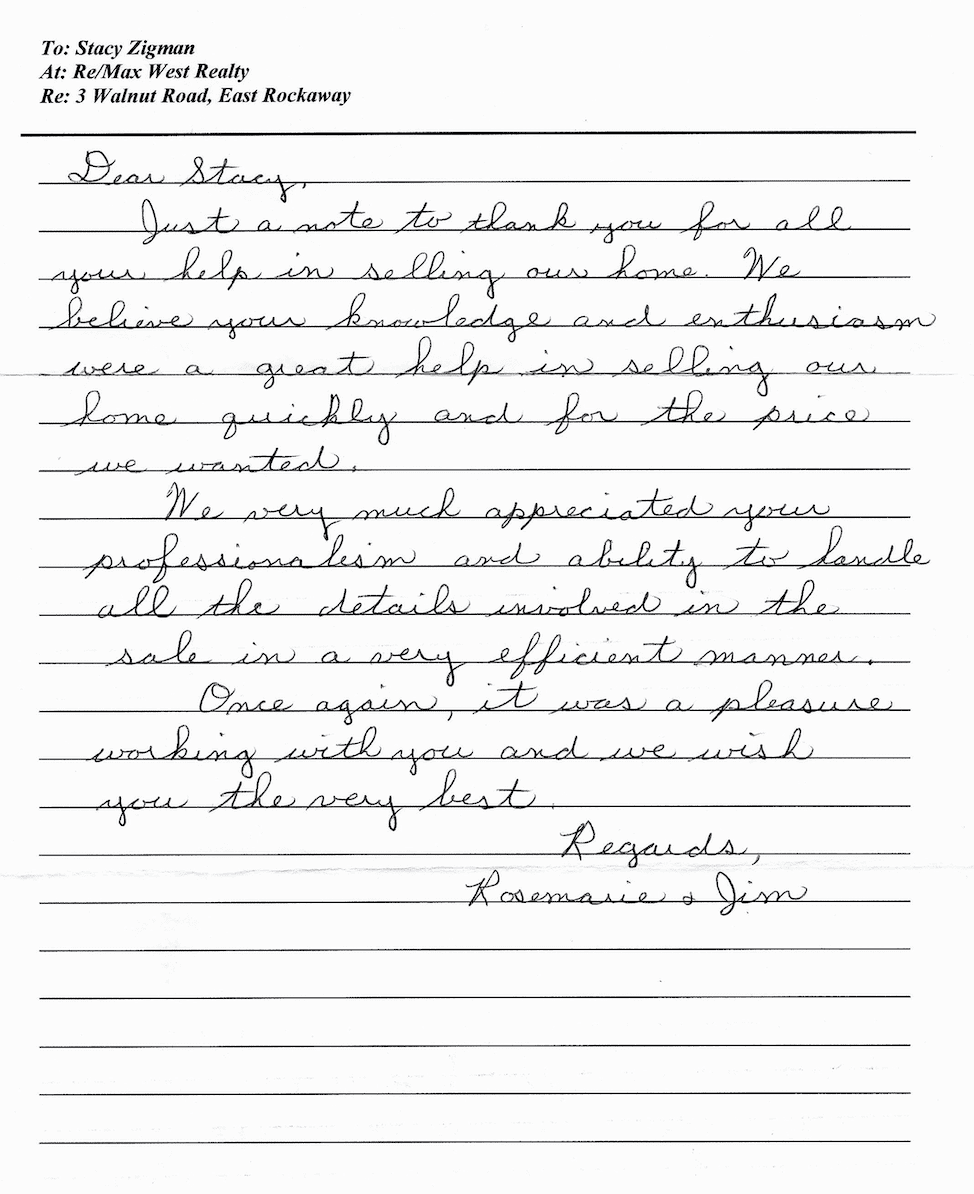 To: Stacy Zigman
At: Re/Max West Realty
Re: 3 Walnut Road, East Rockaway
Dear Stacy,
Just a note to thank you for all
your help in selling our home. We
believe your knowledge and enthusiasm
were a great help in selling our
home quickly and for the price
we wanted.
We very much appreciated your
professionalism and ability to handle
all the details involved in the
sale in a very efficient manner.
Once again, it was a pleasure
working with you and we wish
you the very best.
Regards,
Rosemarie & Jim